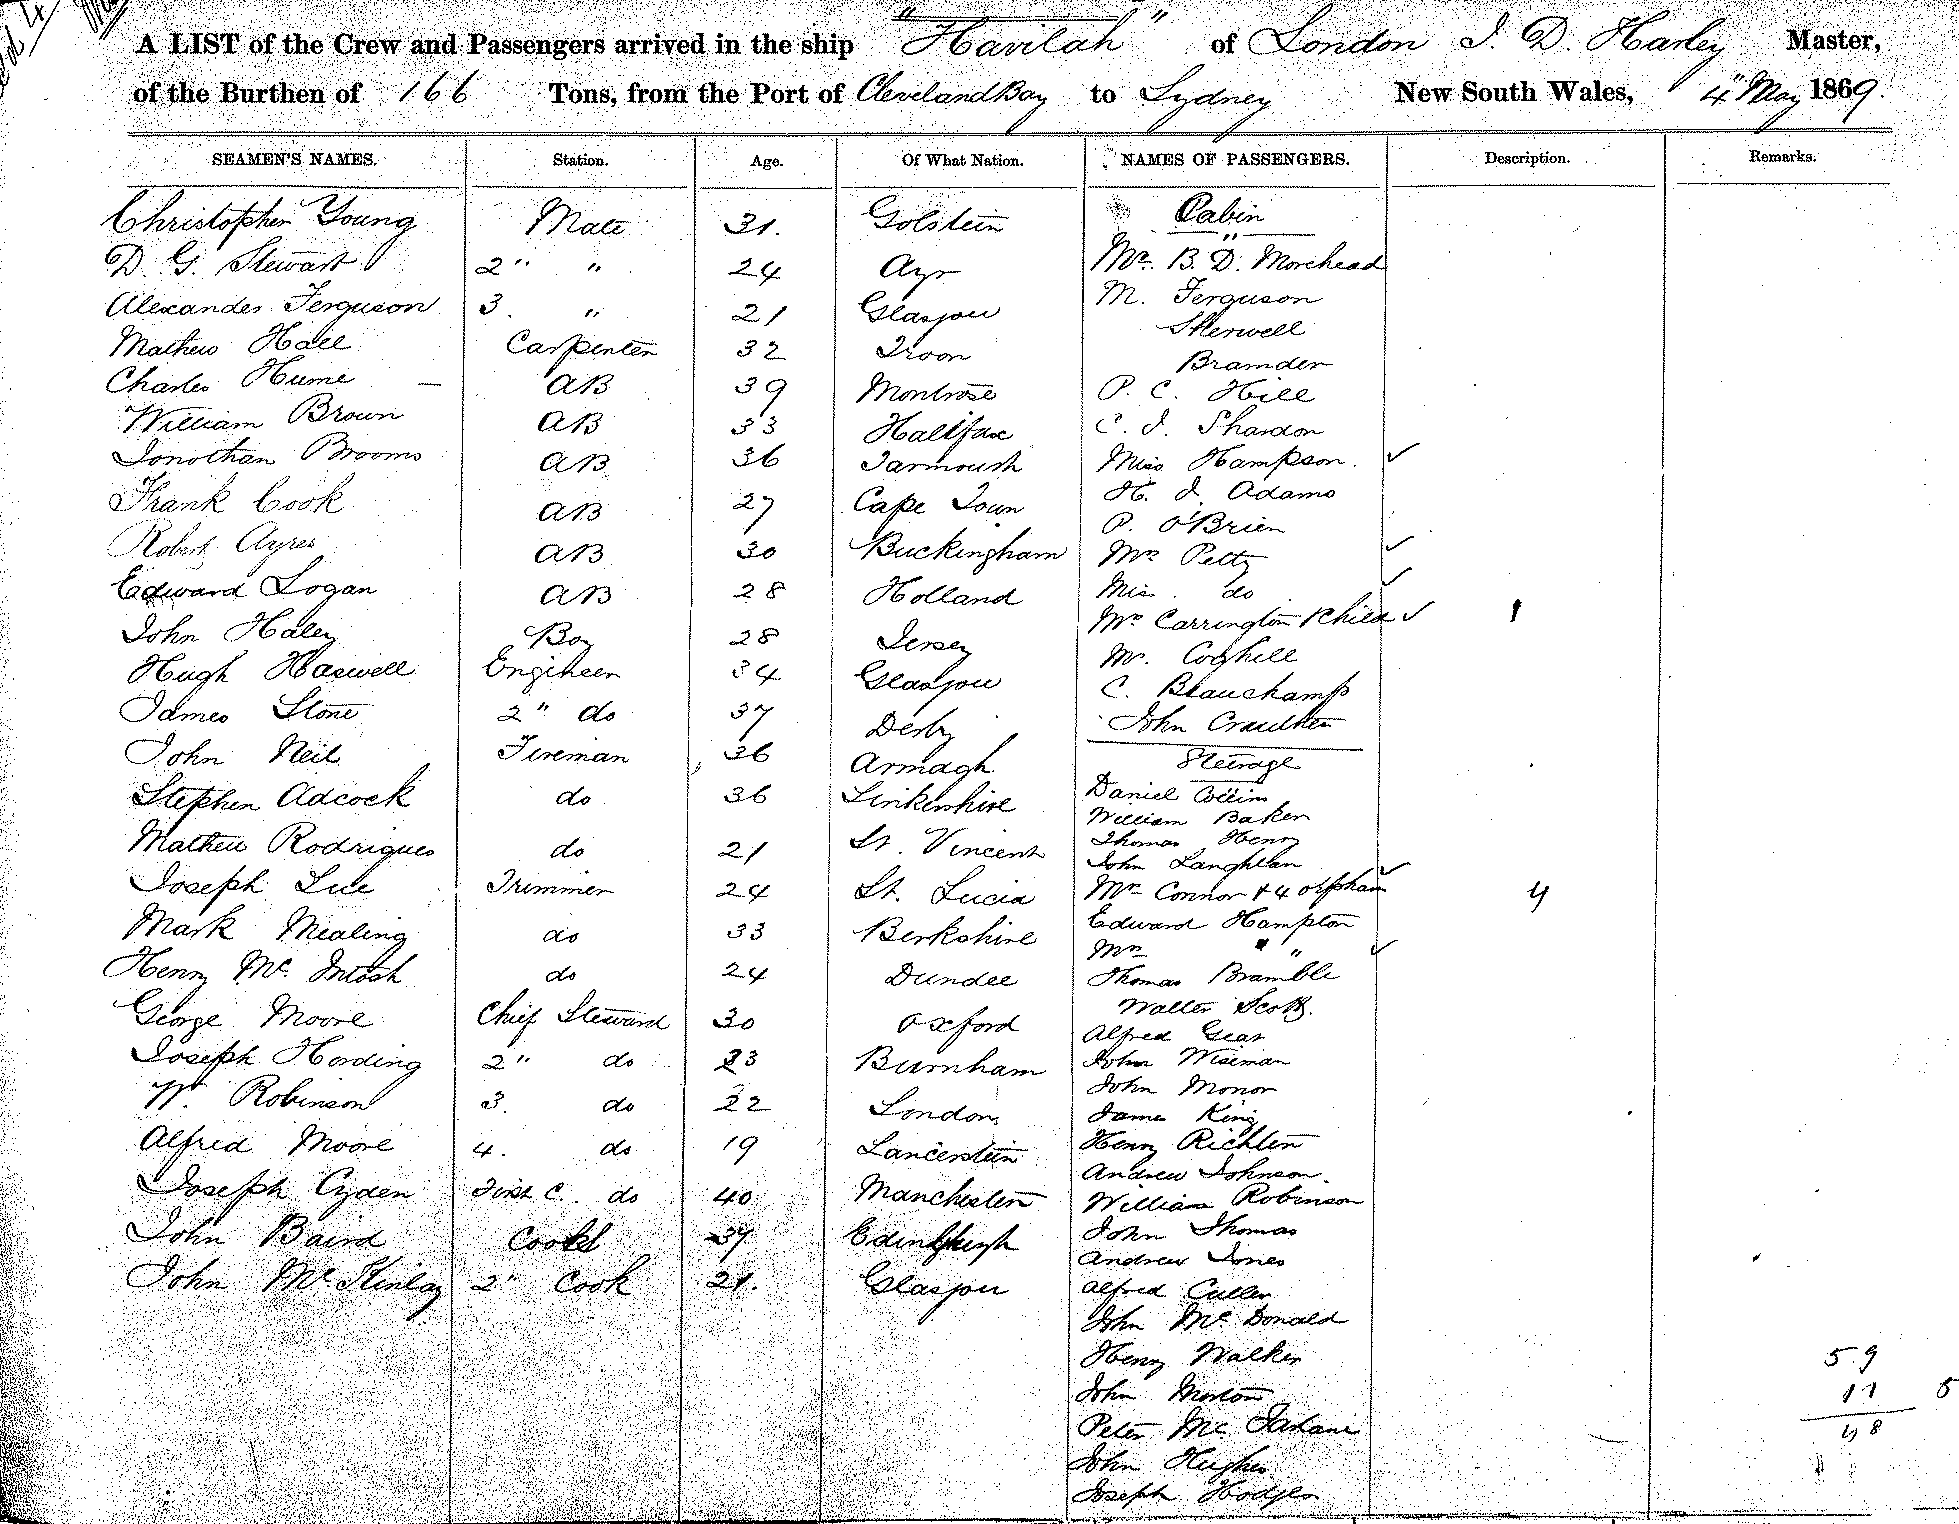 A LIST of the Crew and Passengers arrived in the ship "Havilah" of London J. D. Harley Master,
of the Burthen of 166 Tons, from the Port of Cleveland Bay to Sydney New South Wales, 4" May 1869.
SEAMEN'S NAMES. Station. Age. Of What Nation. NAMES OF PASSENGERS. Description. Remarks.
Christopher Young Mate 31. Golstein
D. G. Stewart 2" " 24 Ayr
Alexander Ferguson 3. " 21 Glasgow
Mathew Hall Carpenter 32 Troon
Charles Hume AB 39 Montrose
William Brown AB 33 Halifax
Jonothan Brooms AB 36 Yarmouth
Frank Cook AB 27 Cape Town
Robert Ayres AB 30 Buckingham
Edward Logan AB 28 Holland
John Haley Boy 28 Jersey
Hugh Haswell Engineer 34 Glasgow
James Stone 2" do 37 Derby
John Neil Fireman 36 Armagh
Stephen Adcock do 36
Mathew Rodrigues do 21 St. Vincent
Joseph Luc Trimmer 24 St. Lucia
Mark Mealing do 33 Berkshire
Henry Mc. Intosh do 24 Dundee
George Moore Chief Steward 30 Oxford
Joseph Hording 2" do 23 Burnham
W. Robinson 3. do 22 London
Alfred Moore 4. do 19
Joseph Cyden First C. do 40 Manchester
John Baird Cook 37 Edinburgh
John Mc Kinlay 2" Cook 21. Glasgow
Cabin
Mr. B. D. Morehead
M. Ferguson
Sherwell
Bramder
P. C. Hill
C. J. Shardon
Miss Hampson.
H. J. Adams
P. O'Brien
Mrs Petty
Miss do
Mrs Carrington & Child 1
Mr. Coghill
C. Beauchamp
John
Steerage
Daniel Collins
William Baker
Thomas Henry
John Langhlan
Mrs Connor & 4 orphans 4
Edward Hampton
Mrs " "
Thomas Bramble
Walter Scott.
Alfred Gear
John Wiseman
John Monor
James King
Henry Richter
Andrew Johnson.
William Robinson
John Thomas
Andrew Jones
Alfred Cullen
John Mc Donald
Henry Walker
John Morton
Peter Mc
John Hughes
Joseph Hodges
59
11 5
48